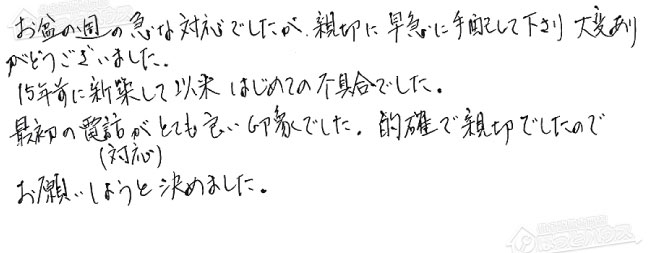 お盆の週の急な対応でしたが、親切に早急に手配して下さり 大変あり
がとうございました。
15年前に新築して以来 はじめての不具合でした。
最初の電話がとても良い印象でした。的確で親切でしたので
(対応)
お願いしようと決めました。